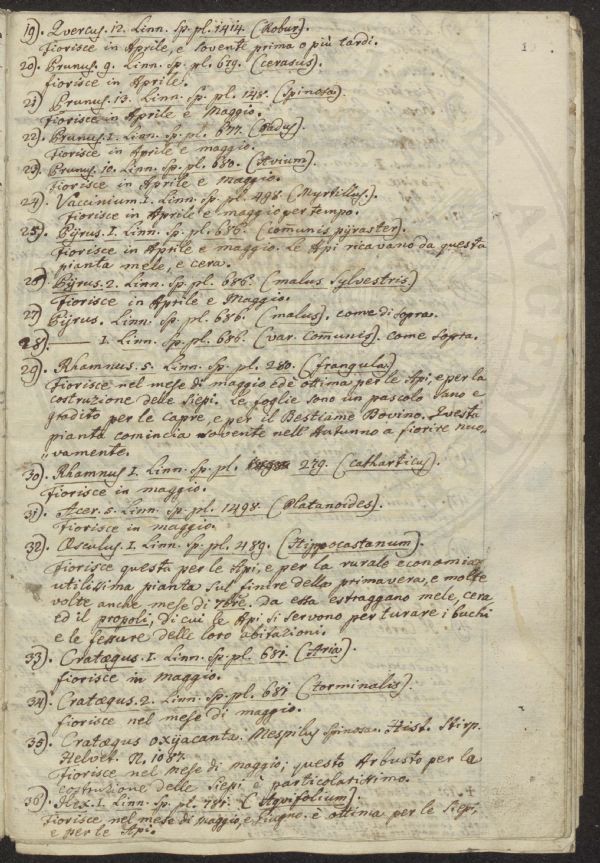 19). Quercus. 12. Linn. Sp. pl. 1414. (Robur).
Fiorisce in Aprile, e sovente prima o più tardi.
20). Prunus. 9. Linn. Sp. pl. 679. (cerasus).
fiorisce in Aprile.
21) Prunus. 13. Linn. Sp. pl. 148. (Spinosa).
Fiorisce in Aprile e Maggio.
22). Prunus. I. Linn. Sp. pl. 677. (Padus).
Fiorisce in Aprile e maggio.
23). Prunus. 10. Linn. Sp. pl. 680. (Avium).
fiorisce in Aprile e Maggio.
24). Vaccinium I. Linn. Sp. pl. 498. (Myrtillus).
Fiorisce in Aprile e maggio per tempo.
25). Pÿrus. I. Linn. Sp. pl. 686. (comunis pÿraster).
Fiorisce in Aprile e maggio. Le Api ricavano da questa
pianta mele, e cera.
26). Pÿrus. 2. Linn. Sp. pl. 686. (malus Sylvestris)
Fiorisce in Aprile e Maggio.
27) Pÿrus. Linn. Sp. pl. 686. (malus). come di sopra.
28). —— I. Linn. Sp. pl. 686. (var. com̄unis). come Sopra.
29). Rhamnus. 5. Linn. Sp. pl. 280. (frangula)
Fiorisce nel mese di maggio ed è ottima per le Api, e per la
costruzione delle Siepi. Le foglie sono un pascolo sano e
gradito per le capre, e per il Bestiame Bovino. Questa
pianta comincia sovente nell'Autunno a fiorire nuo„
„vamente.
30). Rhamnus I. Linn. Sp. pl. 279. (catharticus).
Fiorisce in maggio.
31). Acer. 5. Linn. Sp. pl. 1498. (Platanoides).
Fiorisce in maggio.
32). Œsculus. I. Linn. Sp. pl. 489. (Hippocastanum).
Fiorisce questa per le Api, e per la rurale economia
utilissima pianta sul finire della primavera, e molte
volte anche mese di 7bre. Da essa estraggano mele, cera
ed il propoli, di cui le Api si servono per turare i buchi
e le fessure delle loro abitazioni.
33). Cratægus. I. Linn. Sp. pl. 681. (Aria).
fiorisce in maggio.
34). Cratægus. 2. Linn. Sp. pl. 681 (torminalis).
fiorisce nel mese di maggio.
35). Cratægus oxijacanta. Mespilus Spinosa. Hist. Stirp.
Helvet. N. 1087.
Fiorisce nel mese di maggio; questo Arbusto per la
costruzione delle Siepi è particolatissimo.
36). Ilex. I. Linn. Sp. pl. 181. (Aqvifolium).
Fiorisce nel mese di maggio, e Giugno. è ottima per le Siepi,
e per le Api.